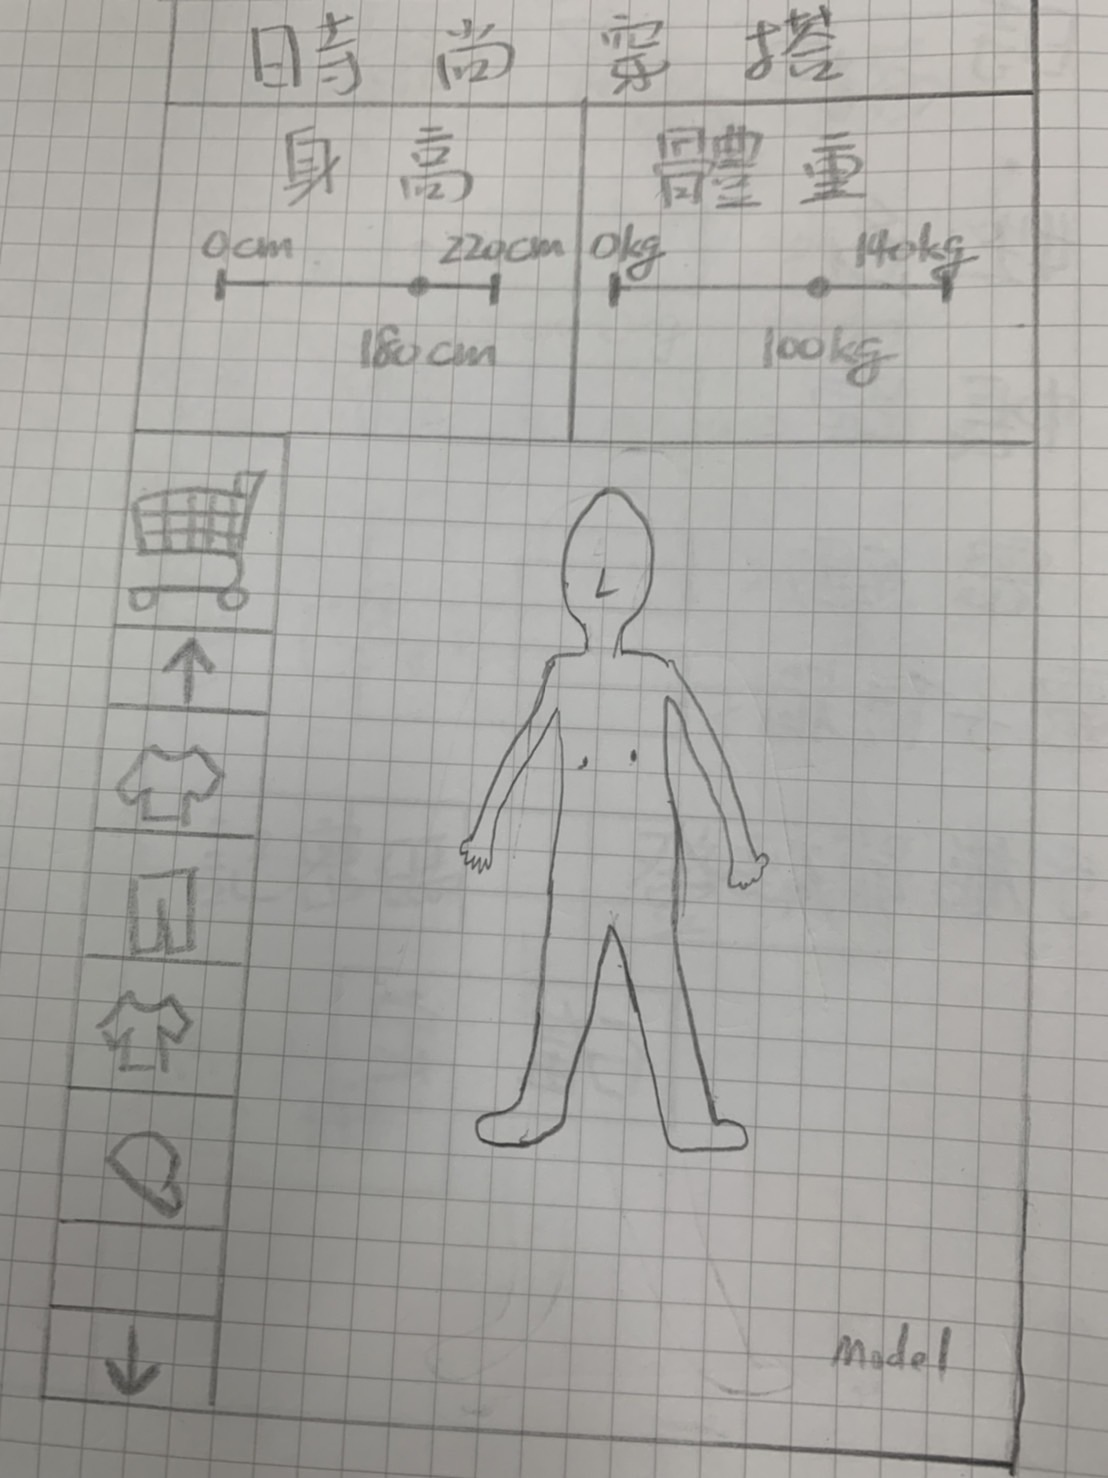 時尚穿搭
身高
0cm 220cm
180cm
體重
0kg 140kg
100kg
Model